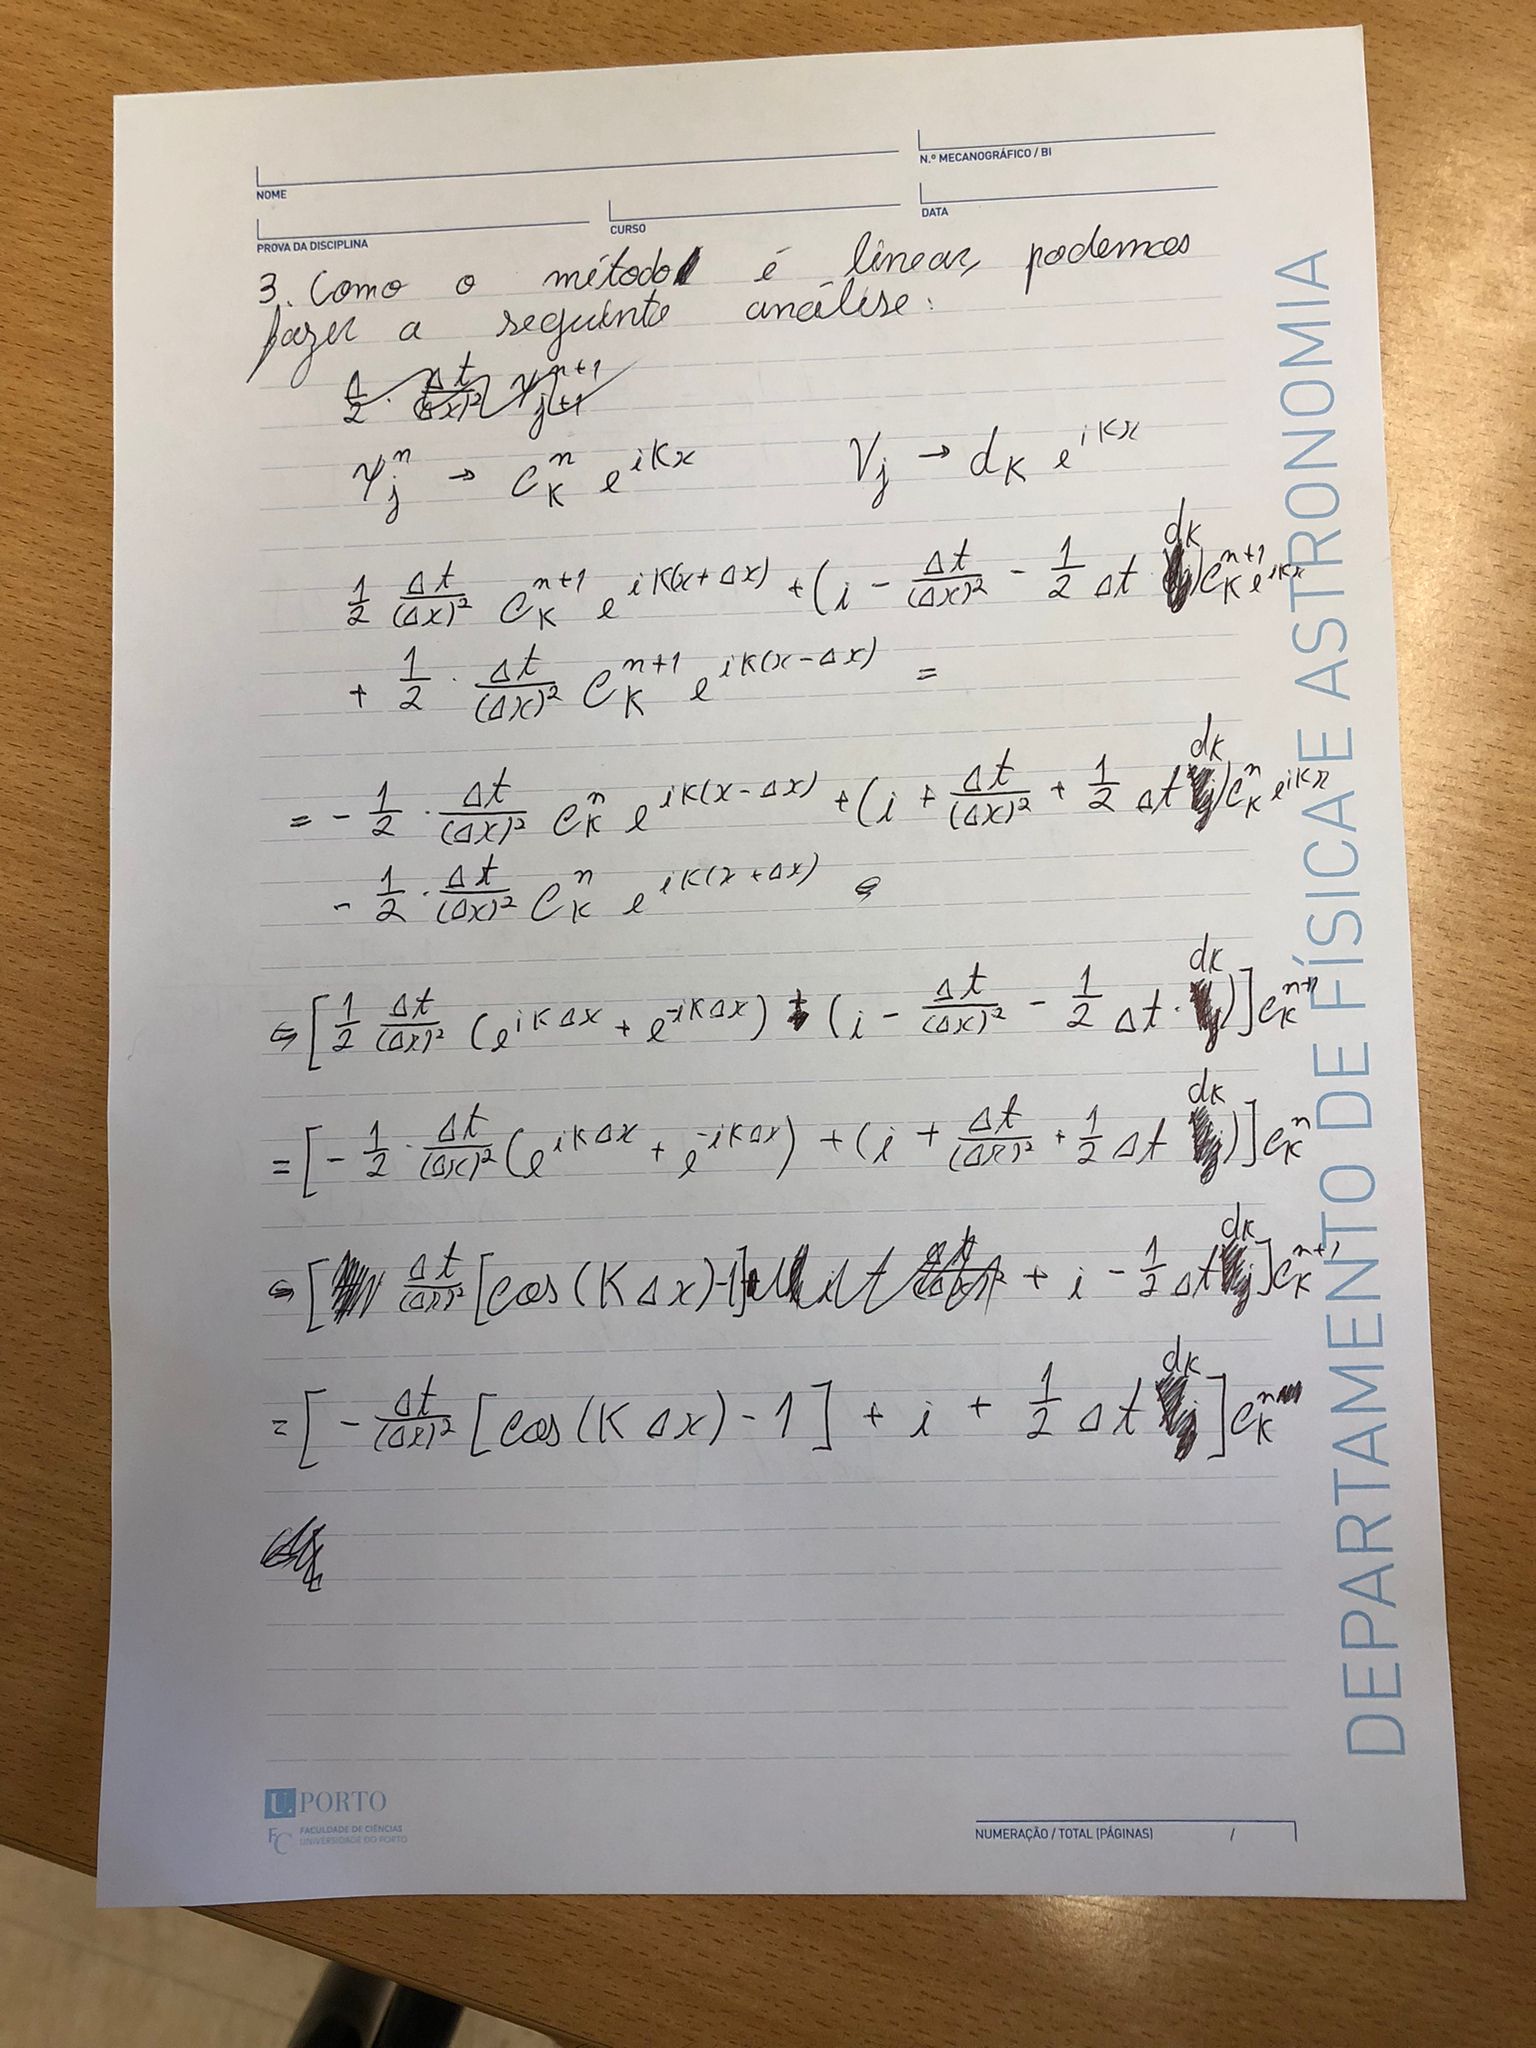 NOME
N.º MECANOGRÁFICO / BI
PROVA DA DISCIPLINA
CURSO
DATA
3. Como o método é linear, podemos
fazer a seguinte análise:
1/2 · Δt/(Δx)² ψ_{j+1}^{n+1}
ψ_j^n → C_K^n e^{iKx}    V_j → d_K e^{iKx}
1/2 Δt/(Δx)² C_K^{n+1} e^{iK(x+Δx)} + (i - Δt/(Δx)² - 1/2 Δt d_K) C_K^{n+1} e^{iKx}
+ 1/2 · Δt/(Δx)² C_K^{n+1} e^{iK(x-Δx)} =
= - 1/2 · Δt/(Δx)² C_K^n e^{iK(x-Δx)} + (i + Δt/(Δx)² + 1/2 Δt d_K) C_K^n e^{iKx}
- 1/2 · Δt/(Δx)² C_K^n e^{iK(x+Δx)} ⇔
⇔ [1/2 Δt/(Δx)² (e^{iKΔx} + e^{-iKΔx}) + (i - Δt/(Δx)² - 1/2 Δt · d_K)] C_K^{n+1}
= [- 1/2 · Δt/(Δx)² (e^{iKΔx} + e^{-iKΔx}) + (i + Δt/(Δx)² + 1/2 Δt d_K)] C_K^n
⇔ [Δt/(Δx)² [cos(KΔx) - 1] + i - 1/2 Δt d_K] C_K^{n+1}
= [- Δt/(Δx)² [cos(KΔx) - 1] + i + 1/2 Δt d_K] C_K^n
DEPARTAMENTO DE FÍSICA E ASTRONOMIA
U. PORTO
FC FACULDADE DE CIÊNCIAS
UNIVERSIDADE DO PORTO
NUMERAÇÃO / TOTAL (PÁGINAS) /